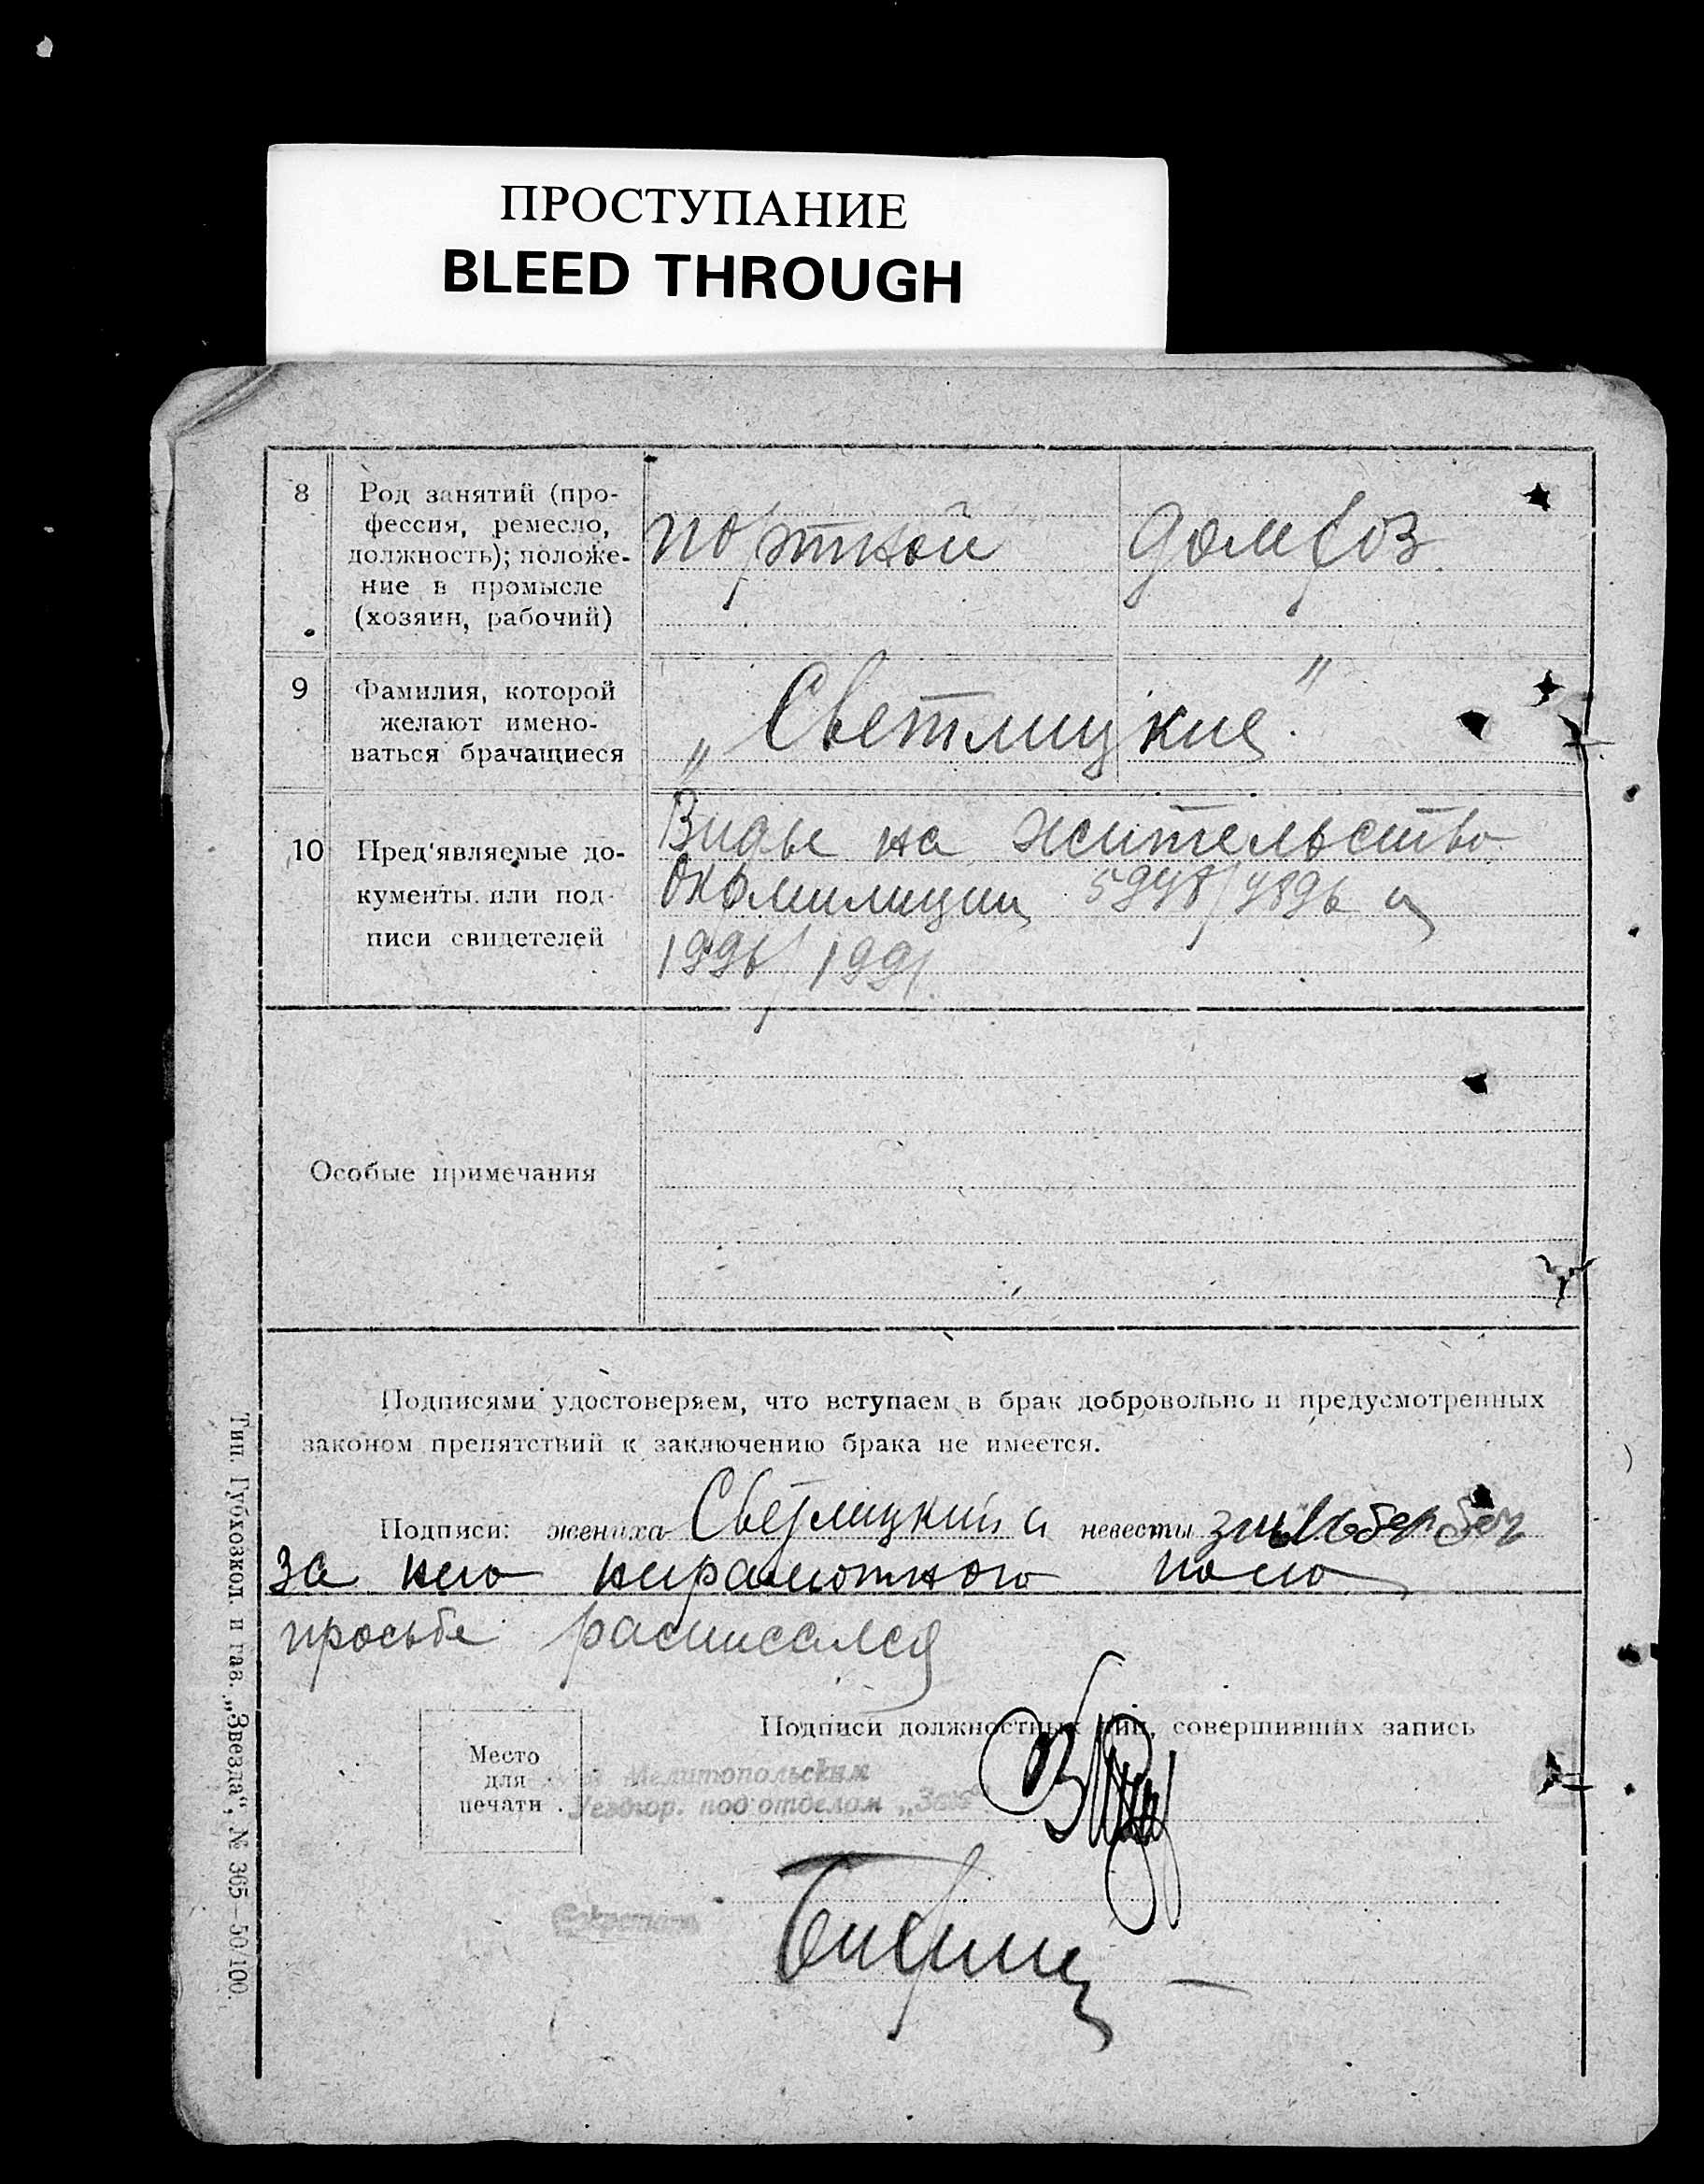 ПРОСТУПАНИЕ
BLEED THROUGH
8
Род занятий (про-
фессия, ремесло,
должность); положе-
ние в промысле
(хозяин, рабочий)
портной
домхоз.
9
Фамилия, которой
желают имено-
ваться брачащиеся
„Светлицкие."
10
Пред'являемые до-
кументы или под-
писи свидетелей
Виды на жительство
Окрмилиции 5948/4896 и
1996/1991.
Особые примечания
Подписями удостоверяем, что вступаем в брак добровольно и предусмотренных
законом препятствий к заключению брака не имеется.
Подписи: жениха Светлицкий а невесты
за нею неграмотного по его
просьбе расписался
Место
для
печати
Подписи должностных лиц, совершивших запись
Мелитопольским
Уездгор. под'отделом „Загс"
Секретарь
Тип. Губхозкол. и газ. „Звезда", № 365—50/100.